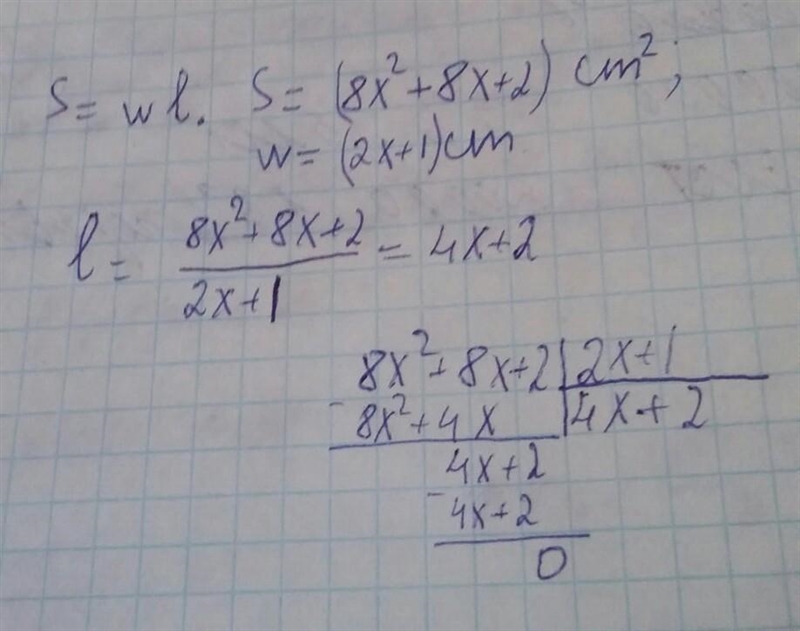 S = wl. S = (8x²+8x+2) cm²;
w = (2x+1)cm
l = \frac{8x²+8x+2}{2x+1} = 4x+2
8x²+8x+2 | 2x+1
- 8x²+4x | 4x+2
4x+2
- 4x+2
0